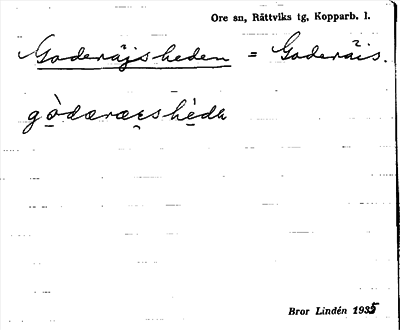 Ore sn, Rättviks tg, Kopparb. l.
Goderäjsheden = Goderäis.
gòdæræɛshèda
Bror Lindén 1935